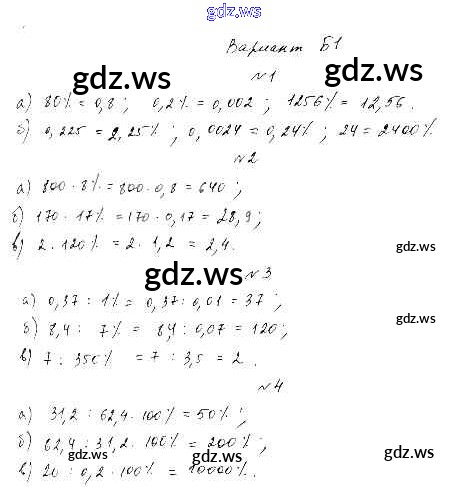 gdz.ws
Вариант Б1
gdz.ws gdz.ws
№1
а) 80% = 0,8 ; 0,2% = 0,002 ; 1256% = 12,56.
б) 0,225 = 2,25% ; 0,0024 = 0,24% ; 24 = 2400%
№2
а) 800 · 8% = 800 · 0,8 = 640 ;
б) 170 · 17% = 170 · 0,17 = 28,9 ;
в) 2 · 120% = 2 · 1,2 = 2,4.
gdz.ws
gdz.ws
№3
а) 0,37 : 1% = 0,37 : 0,01 = 37 ;
gdz.ws
б) 8,4 : 7% = 8,4 : 0,07 = 120 ;
в) 7 : 350% = 7 : 3,5 = 2 .
№4
а) 31,2 : 62,4 · 100% = 50% ;
б) 62,4 : 31,2 · 100% = 200% ;
gdz.ws gdz.ws
в) 20 : 0,2 · 100% = 10000% .
gdz.ws